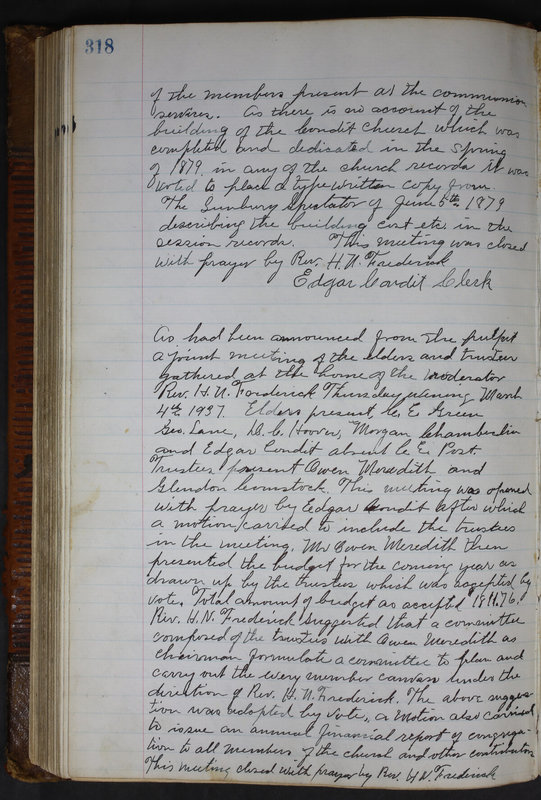 318
of the members present at the communion
services. As there is no account of the
building of the Condit Church which was
completed and dedicated in the spring
of 1879 in any of the church records it was
voted to place a typewritten copy from
The Sunbury Spectator of June 5th 1879
describing the building cost etc. in the
session records. This meeting was closed
with prayer by Rev. H. N. Frederick
Edgar Condit Clerk
As had been announced from the pulpit
a joint meeting of the elders and trustees
gathered at the home of the moderator
Rev. H. N. Frederick Thursday evening March
4th 1937. Elders present C. E. Green
Geo. Lane, D. C. Hoover, Morgan Chamberlin
and Edgar Condit absent C. E. Post.
Trustees present Owen Meredith and
Glendon Comstock. This meeting was opened
with prayer by Edgar Condit after which
a motion carried to include the trustees
in the meeting. Mr Owen Meredith then
presented the budget for the coming year as
drawn up by the trustees which was accepted by
vote. Total amount of budget as accepted
Rev. H. N. Frederick suggested that a committee
composed of the trustees with Owen Meredith as
chairman formulate a committee to plan and
carry out the every member canvass under the
direction of Rev. H. N. Frederick. The above sugges-
tion was adopted by vote. a motion also carried
to issue an annual financial report of congrega-
tion to all members of the church and other contributors
This meeting closed with prayer by Rev. H. N. Frederick